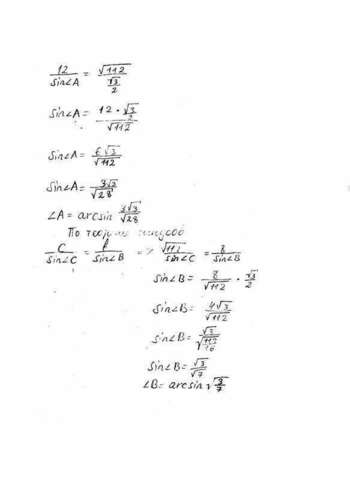 12/sin∠A = √112/(√3/2)
sin∠A = (12 · √3/2)/√112
sin∠A = 6√3/√112
sin∠A = 3√3/√28
∠A = arcsin 3√3/√28
По теореме синусов
C/sin∠C = b/sin∠B => √112/sin∠C = 8/sin∠B
sin∠B = 8/√112 · √3/2
sin∠B = 4√3/√112
sin∠B = √3/√(112/16)
sin∠B = √3/√7
∠B = arcsin √(3/7)